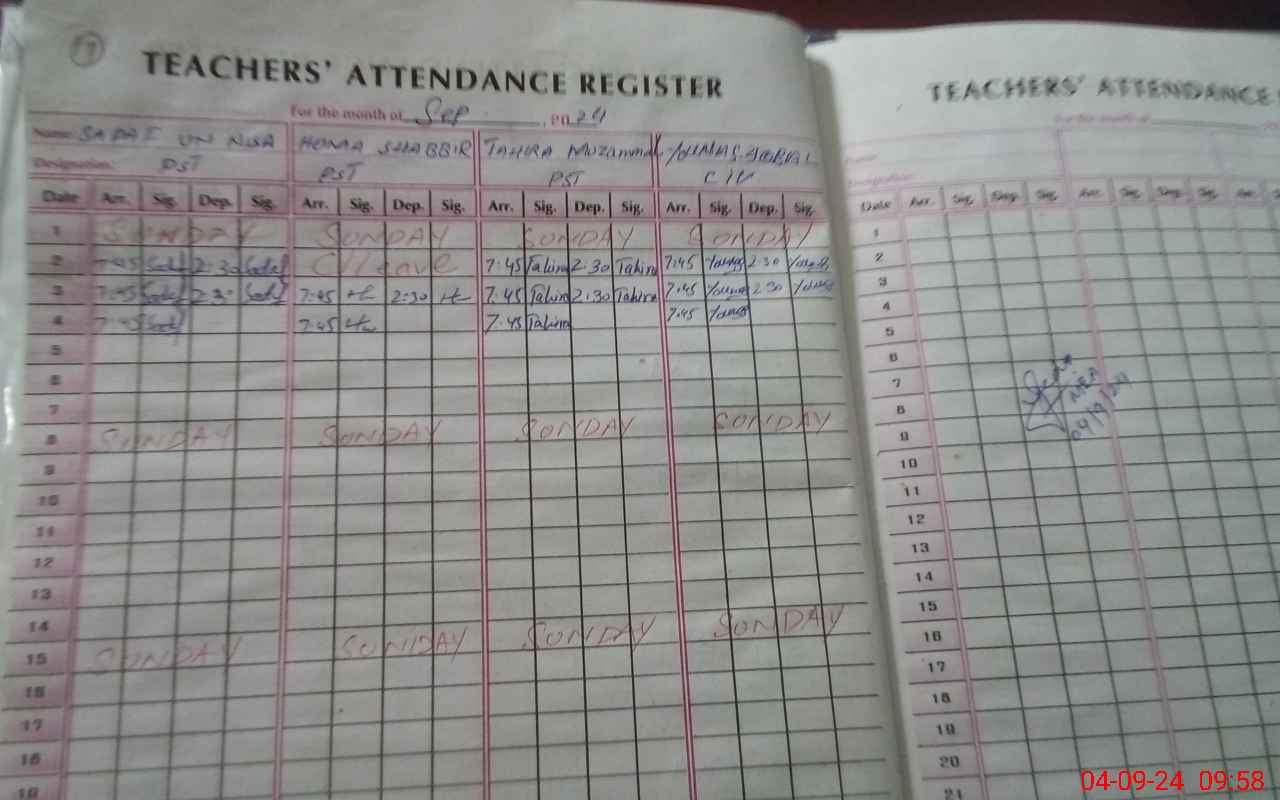 17
TEACHERS' ATTENDANCE REGISTER
For the month of Sep, 2024
Name SADAF UN NISA HUMA SHABBIR TAHIRA Muzammal YOUNAS
Designation PST PST PST C IV
Date Arr. Sig. Dep. Sig. Arr. Sig. Dep. Sig. Arr. Sig. Dep. Sig. Arr. Sig. Dep. Sig.
1 SUNDAY SUNDAY SUNDAY SUNDAY
2 7:45 Sadaf 2:30 Sadaf C/leave 7:45 Tahira 2:30 Tahira 7:45 Younas 2:30 Younas
3 7:45 Sadaf 2:30 Sadaf 7:45 2:30 7:45 Tahira 2:30 Tahira 7:45 Younas 2:30 Younas
4 7:45 Sadaf 7:45 7:45 Tahira 7:45 Younas
5
6
7
8 SUNDAY SUNDAY SUNDAY SUNDAY
9
10
11
12
13
14
15 SUNDAY SUNDAY SUNDAY SUNDAY
16
17
18
19
TEACHERS' ATTENDANCE
For the month of
Date Arr. Sig. Dep. Sig. Arr. Sig. Dep. Sig. Arr. Sig.
1
2
3
4
5
6
7
8
9
10
11
12
13
14
15
16
17
18
19
20
21
04/9/24
04-09-24 09:58